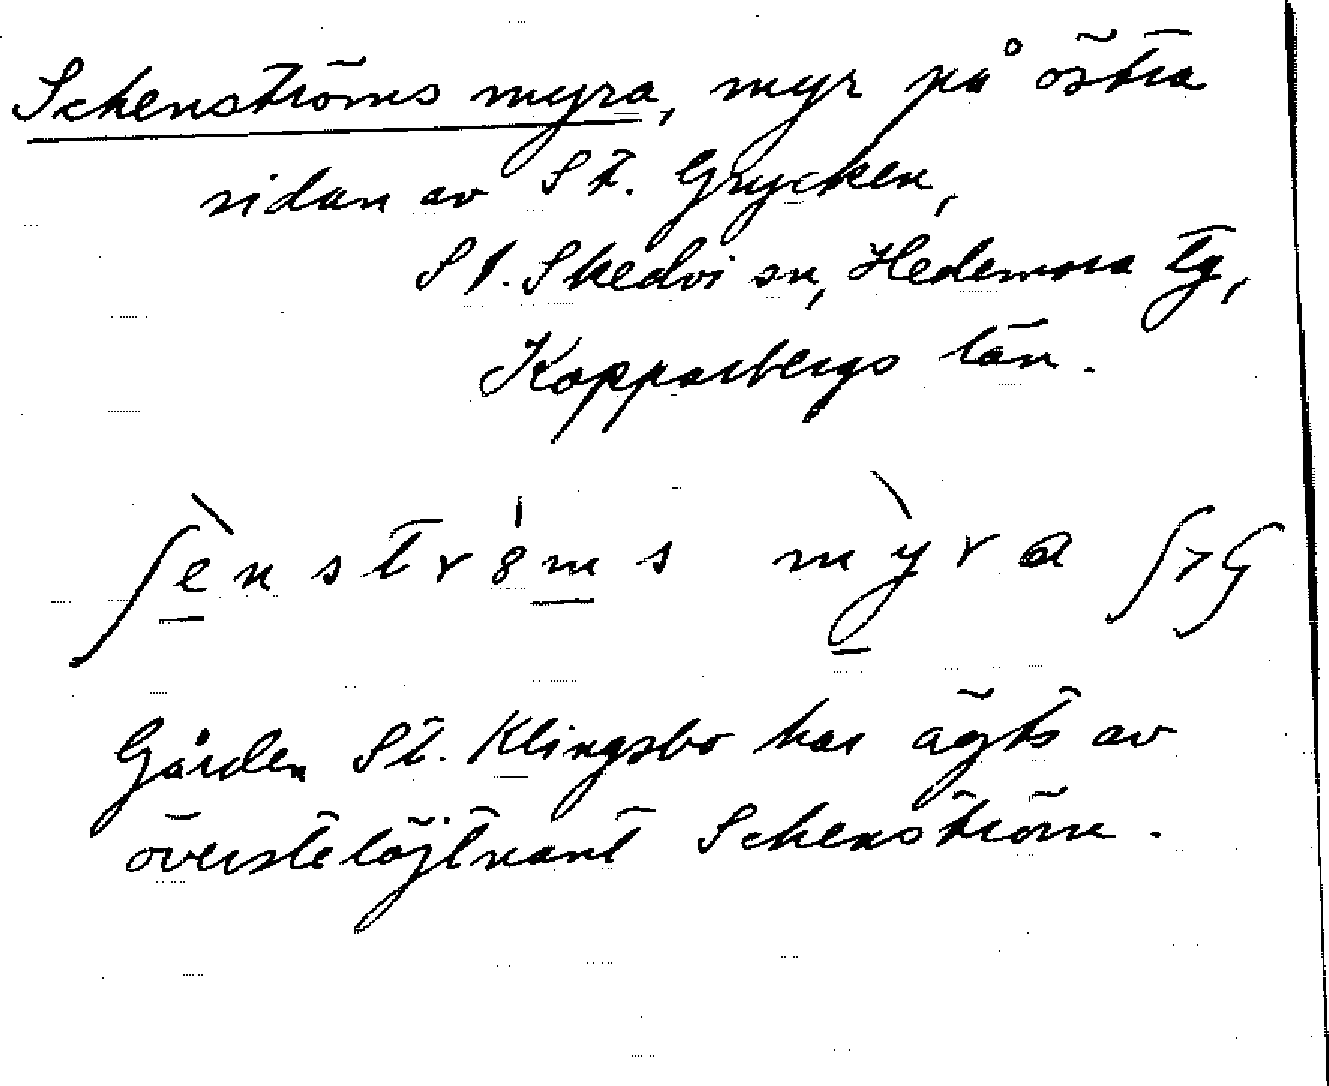 Schenströms myra, myr på östra
sidan av St. Grycken,
St. Skedvi sn, Hedemora tg,
Kopparbergs län.
ʃènströ́ms mỳra
Gården St. Klingsbo har ägts av
överstelöjtnant Schenström.